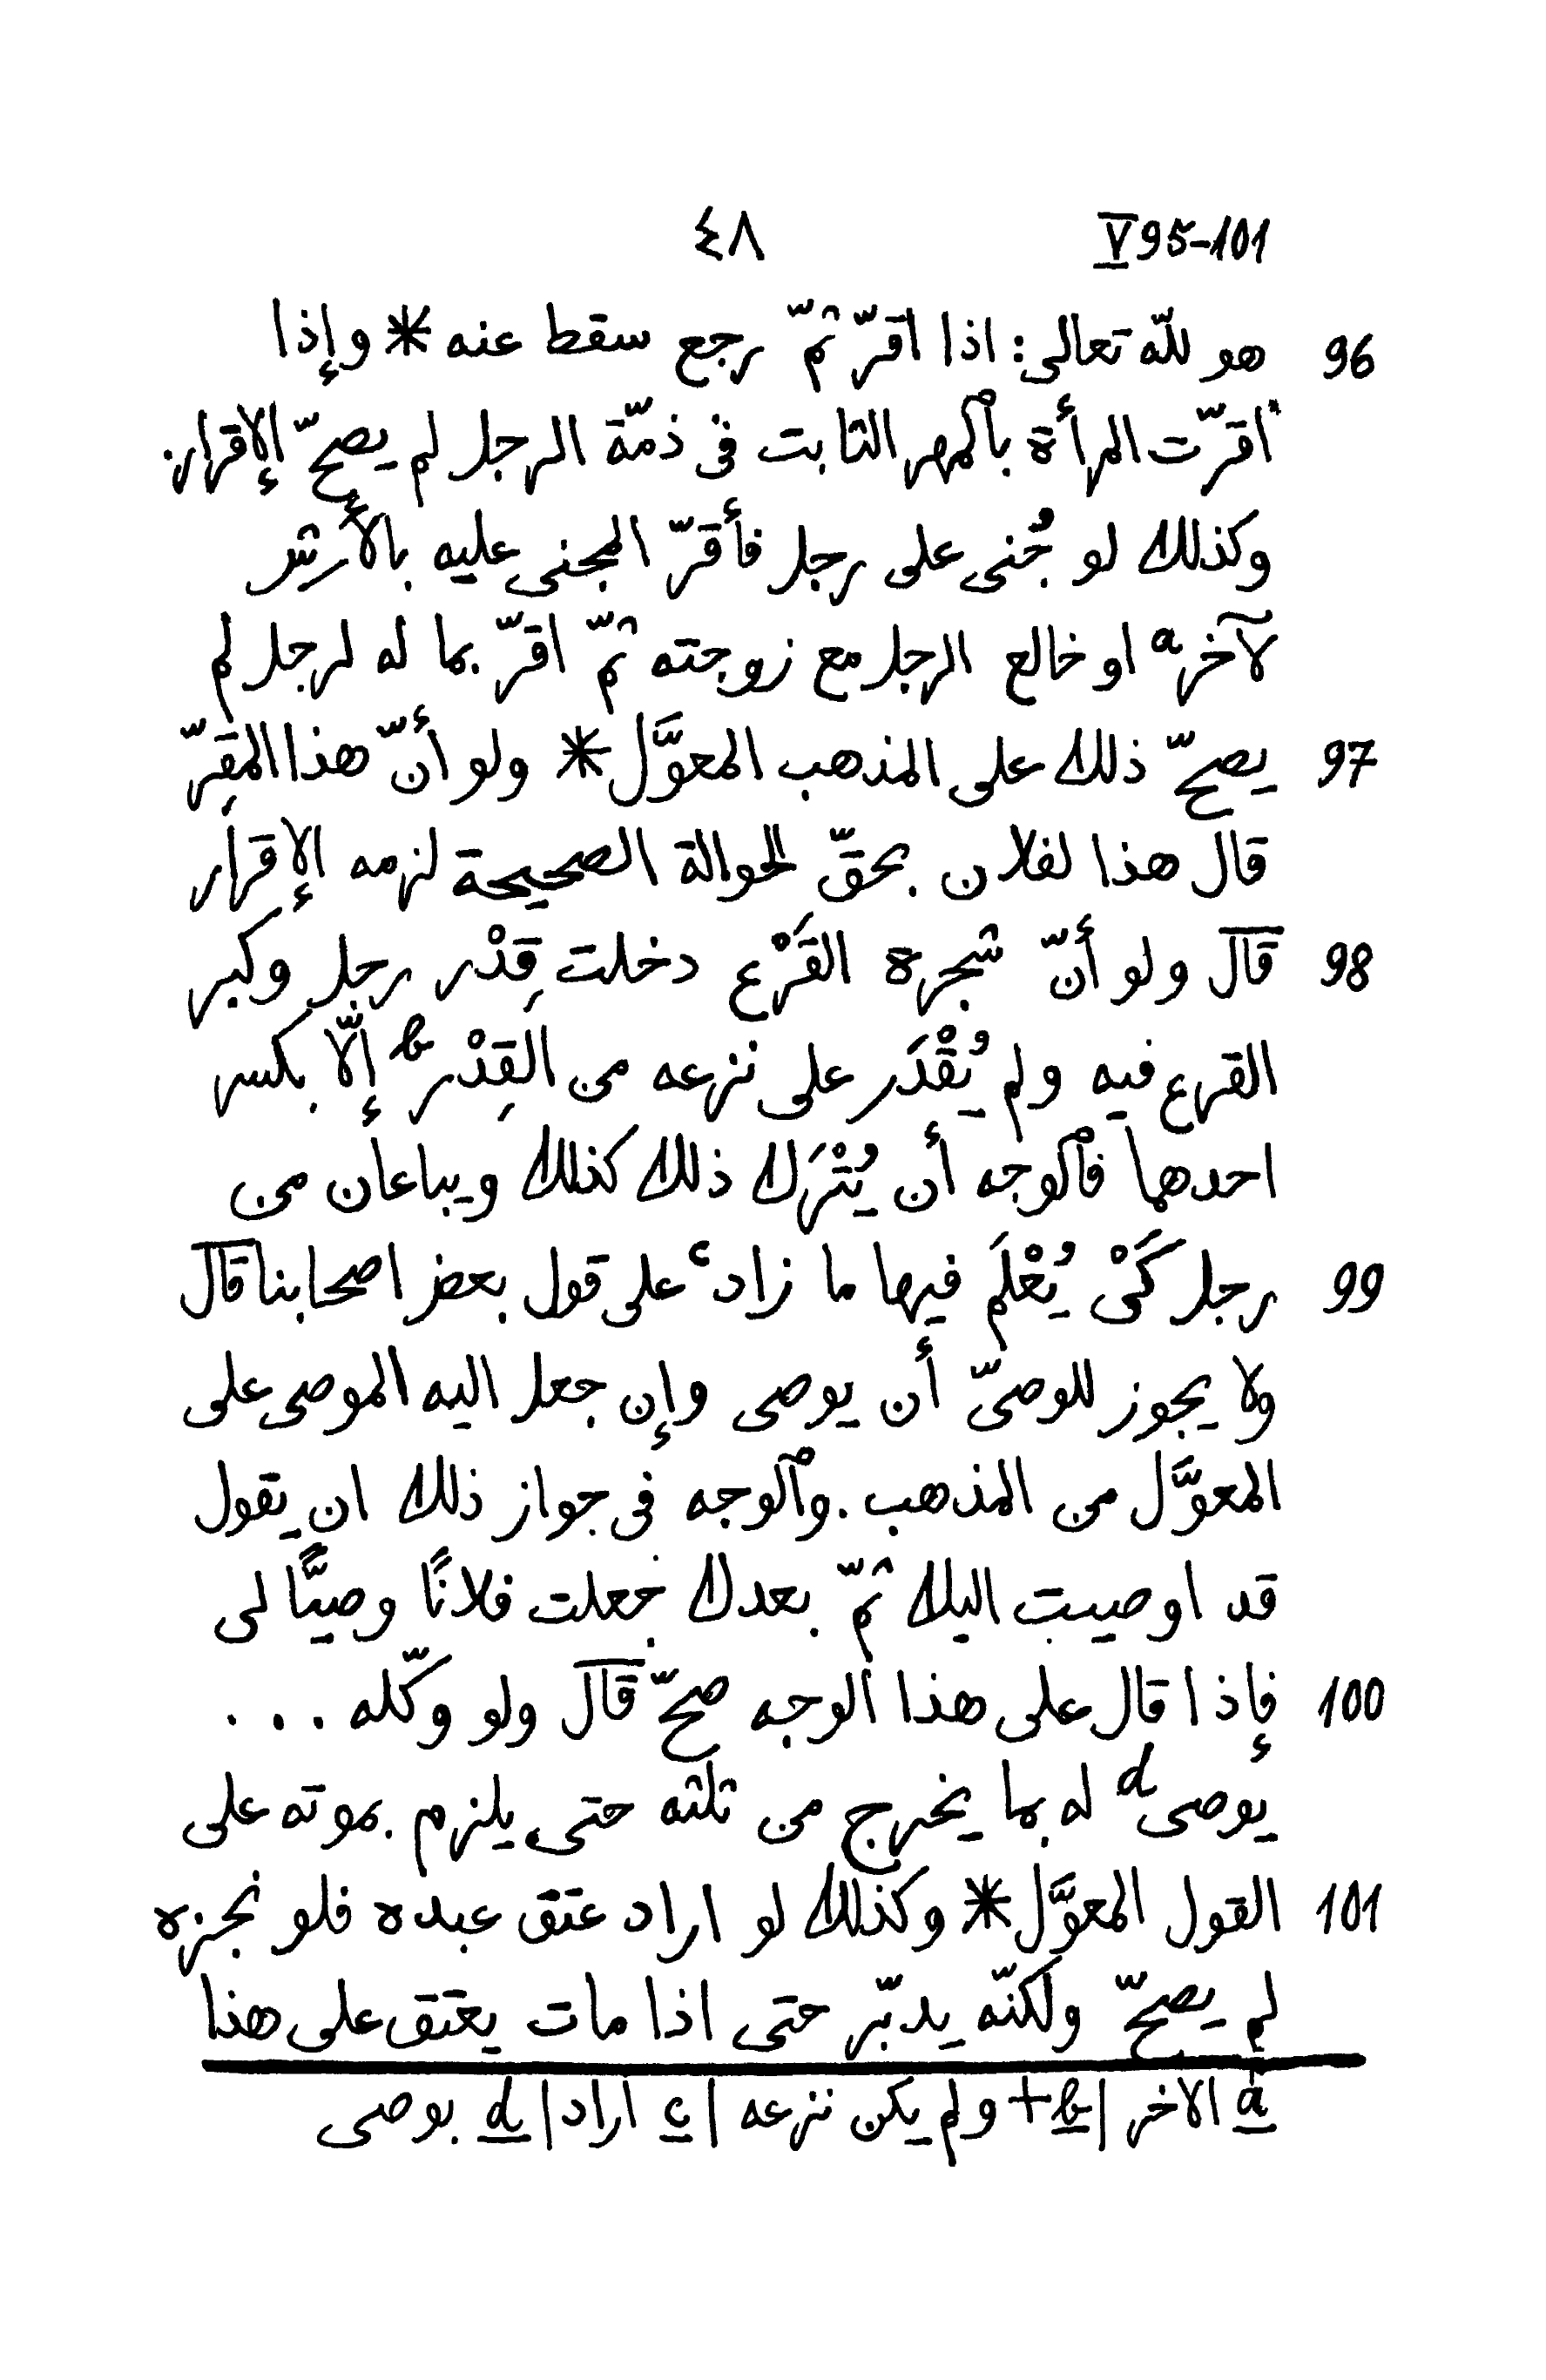 V 95-101 ٤٨
96 هو للّه تعالى: اذا اقرّ ثمّ رجع سقط عنه * وإذا
اقرّت المرأة بٱلمهر الثابت فى ذمّة الرجل لم يصحّ الإقرار.
وكذلك لو جُنى على رجل فأقرّ المجنى عليه بالأرش
لآخر a او خالع الرجل مع زوجته ثمّ اقرّ بما له لرجل لم
97 يصحّ ذلك على المذهب المعوَّل * ولو أنّ هذا المقِرّ
قال هذا لفلان بحقّ الحوالة الصحيحة لزمه الإقرار
98 قال ولو أنّ شجرة القَرْع دخلت قِدْر رجل وكبر
القرع فيه ولم يُقْدَر على نزعه من القِدْر b إلّا بكسر
احدهما فٱلوجه أن يُتْرَك ذلك كذلك ويباعان من
99 رجل كَىْ يُعْلَم فيها ما زاد c على قول بعض اصحابنا قال
ولا يجوز للوصىّ أن يوصى وإن جعل اليه الموصى على
المعوَّل من المذهب. وٱلوجه فى جواز ذلك ان يقول
قد اوصيت اليك ثمّ بعدك جعلت فلانًا وصيًّا لى
100 فإذا قال على هذا الوجه صحّ قال ولو وكّله . . .
يوصى d له بما يخرج من ثلثه حتى يلزم بموته على
101 القول المعوَّل * وكذلك لو اراد عتق عبده فلو نجزه
لم يصحّ ولكنّه يدبّر حتى اذا مات يعتق على هذا
a الاخر | b + ولم يكن نزعه | c اراد | d بوصى